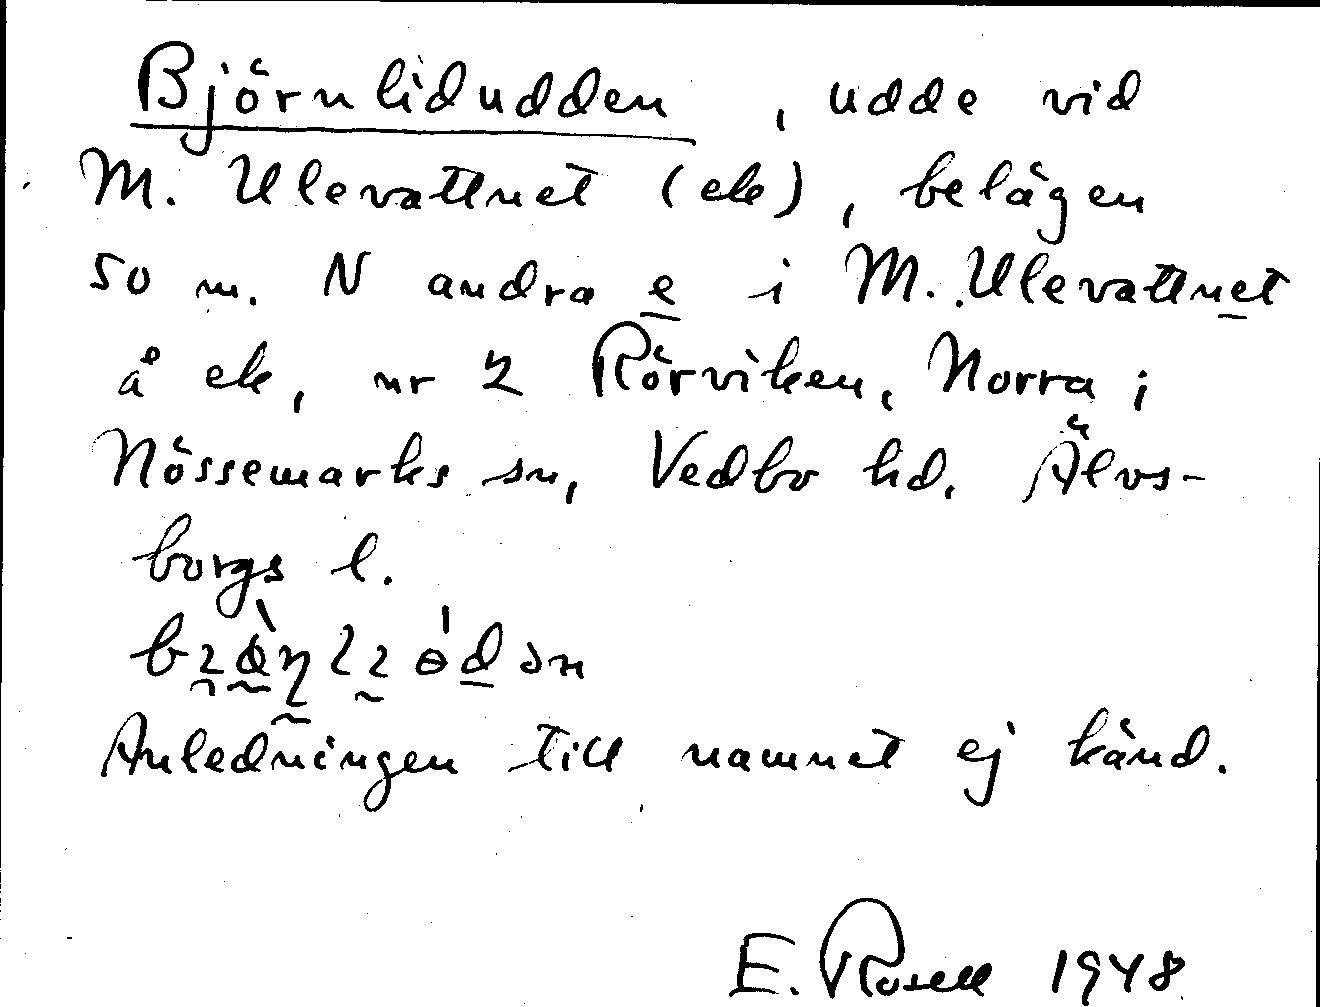 Björnlidudden, udde vid
M. Ulevattnet (ek), belägen
50 m. N andra e i M. Ulevattnet
å ek, nr 2 Rörviken, Norra i
Nössemarks sn, Vedbo hd. Älvs-
borgs l.
Anledningen till namnet ej känd.
E. Rosell 1948